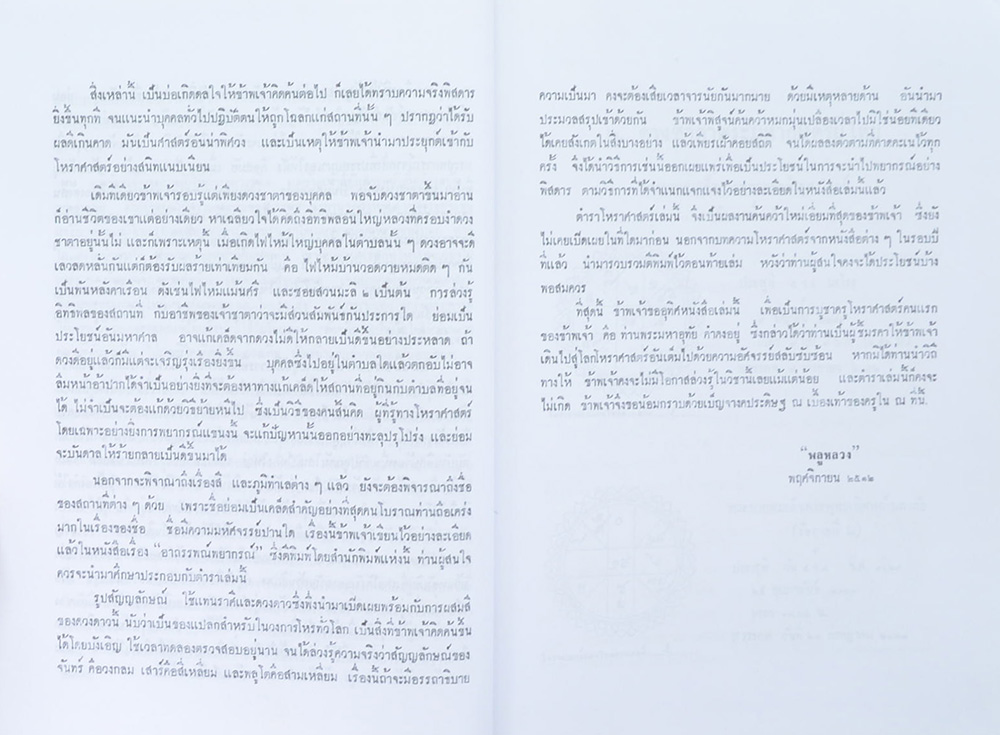 สิ่งเหล่านี้ เป็นบ่อเกิดดลใจให้ข้าพเจ้าคิดค้นต่อไป ก็เลยได้ทราบความจริงพิสดาร
ยิ่งขึ้นทุกที จนแนะนำบุคคลทั่วไปปฏิบัติตนให้ถูกโฉลกแก่สถานที่นั้น ๆ ปรากฏว่าได้รับ
ผลดีเกินคาด มันเป็นศาสตร์อันน่าพิศวง และเป็นเหตุให้ข้าพเจ้านำมาประยุกต์เข้ากับ
โหราศาสตร์อย่างสนิทแนบเนียน
เดิมทีเดียวข้าพเจ้ารอบรู้แต่เพียงดวงชาตาของบุคคล พอจับดวงชาตาขึ้นมาอ่าน
ก็อ่านชีวิตของเขาแต่อย่างเดียว หาเฉลียวใจได้คิดถึงอิทธิพลอันใหญ่หลวงที่ครอบงำดวง
ชาตาอยู่นั้นไม่ และก็เพราะเหตุนี้ เมื่อเกิดไฟไหม้ใหญ่บุคคลในตำบลนั้น ๆ ดวงอาจจะดี
เลวลดหลั่นกันแต่ก็ต้องรับผลร้ายเท่าเทียมกัน คือ ไฟไหม้บ้านวอดวายหมดติด ๆ กัน
เป็นพันหลังคาเรือน ดังเช่นไฟไหม้แม้นศรี และซอยสวนมะลิ ๒ เป็นต้น การล่วงรู้
อิทธิพลของสถานที่ กับอาชีพของเจ้าชาตาว่าจะมีส่วนสัมพันธ์กันประการใด ย่อมเป็น
ประโยชน์อันมหาศาล อาจแก้เคล็ดจากดวงไม่ดีให้กลายเป็นดีขึ้นอย่างประหลาด ถ้า
ดวงดีอยู่แล้วก็มีแต่จะเจริญรุ่งเรืองยิ่งขึ้น บุคคลซึ่งไปอยู่ในตำบลใดแล้วตกอับไม่อาจ
ลืมหน้าอ้าปากได้จำเป็นอย่างยิ่งที่จะต้องหาทางแก้เคล็ดให้สถานที่อยู่กินกับตำบลที่อยู่จน
ได้ ไม่จำเป็นจะต้องแก้ด้วยวิธีย้ายหนีไป ซึ่งเป็นวิธีของคนสิ้นคิด ผู้ที่รู้ทางโหราศาสตร์
โดยเฉพาะอย่างยิ่งการพยากรณ์แขนงนี้ จะแก้ปัญหานี้ออกอย่างทะลุปรุโปร่ง และย่อม
จะบันดาลให้ร้ายกลายเป็นดีขึ้นมาได้
นอกจากจะพิจาณาถึงเรื่องสี และภูมิทำเลต่าง ๆ แล้ว ยังจะต้องพิจารณาถึงชื่อ
ของสถานที่ต่าง ๆ ด้วย เพราะชื่อย่อมเป็นเคล็ดสำคัญอย่างที่สุดคนโบราณท่านถือเคร่ง
มากในเรื่องของชื่อ ชื่อมีความมหัศจรรย์ปานใด เรื่องนี้ข้าพเจ้าเขียนไว้อย่างละเอียด
แล้วในหนังสือเรื่อง “อาถรรพณ์พยากรณ์” ซึ่งตีพิมพ์โดยสำนักพิมพ์แห่งนี้ ท่านผู้สนใจ
ควรจะนำมาศึกษาประกอบกับตำราเล่มนี้
รูปสัญญลักษณ์ ใช้แทนราศีและดวงดาวซึ่งพึ่งนำมาเปิดเผยพร้อมกับการผสมสี
ของดวงดาวนี้ นับว่าเป็นของแปลกสำหรับในวงการโหรทั่วโลก เป็นสิ่งที่ข้าพเจ้าคิดค้นขึ้น
ได้โดยบังเอิญ ใช้เวลาทดลองตรวจสอบอยู่นาน จนได้ล่วงรู้ความจริงว่าสัญญลักษณ์ของ
จันทร์ คือวงกลม เสาร์คือสี่เหลี่ยม และพลูโตคือสามเหลี่ยม เรื่องนี้ถ้าจะมีอรรถาธิบาย
ความเป็นมา คงจะต้องเสียเวลาจารนัยกันมากมาย ด้วยมีเหตุหลายด้าน อันนำมา
ประมวลสรุปเข้าด้วยกัน ข้าพเจ้าพิสูจน์ค้นคว้าหมกมุ่นเปลืองเวลาไปมิใช่น้อยทีเดียว
ได้เคยสังเกตในสิ่งบางอย่าง แล้วเพียรเฝ้าคอยสถิติ จนได้ผลลงตัวตามที่คาดคะเนไว้ทุก
ครั้ง จึงได้นำวิธีการเช่นนี้ออกเผยแพร่เพื่อเป็นประโยชน์ในการจะนำไปพยากรณ์อย่าง
พิสดาร ตามวิธีการที่ได้จำแนกแจกแจงไว้อย่างละเอียดในหนังสือเล่มนี้แล้ว
ตำราโหราศาสตร์เล่มนี้ จึงเป็นผลงานค้นคว้าใหม่เอี่ยมที่สุดของข้าพเจ้า ซึ่งยัง
ไม่เคยเปิดเผยในที่ใดมาก่อน นอกจากบทความโหราศาสตร์จากหนังสือต่าง ๆ ในรอบปี
ที่แล้ว นำมารวบรวมตีพิมพ์ไว้ตอนท้ายเล่ม หวังว่าท่านผู้สนใจคงจะได้ประโยชน์บ้าง
พอสมควร
ที่สุดนี้ ข้าพเจ้าขออุทิศหนังสือเล่มนี้ เพื่อเป็นการบูชาครูโหราศาสตร์คนแรก
ของข้าพเจ้า คือ ท่านพระมหาอุทัย คำคงอยู่ ซึ่งกล่าวได้ว่าท่านเป็นผู้ชี้มรคาให้ข้าพเจ้า
เดินไปสู่โลกโหราศาสตร์อันเต็มไปด้วยความอัศจรรย์สลับซับซ้อน หากมิได้ท่านนำวิถี
ทางให้ ข้าพเจ้าคงจะไม่มีโอกาสล่วงรู้ในวิชานี้เลยแม้แต่น้อย และตำราเล่มนี้ก็คงจะ
ไม่เกิด ข้าพเจ้าจึงขอน้อมกราบด้วยเบ็ญจางคประดิษฐ ณ เบื้องเท้าของครูใน ณ ที่นี้.
“พลูหลวง”
พฤศจิกายน ๒๕๑๒